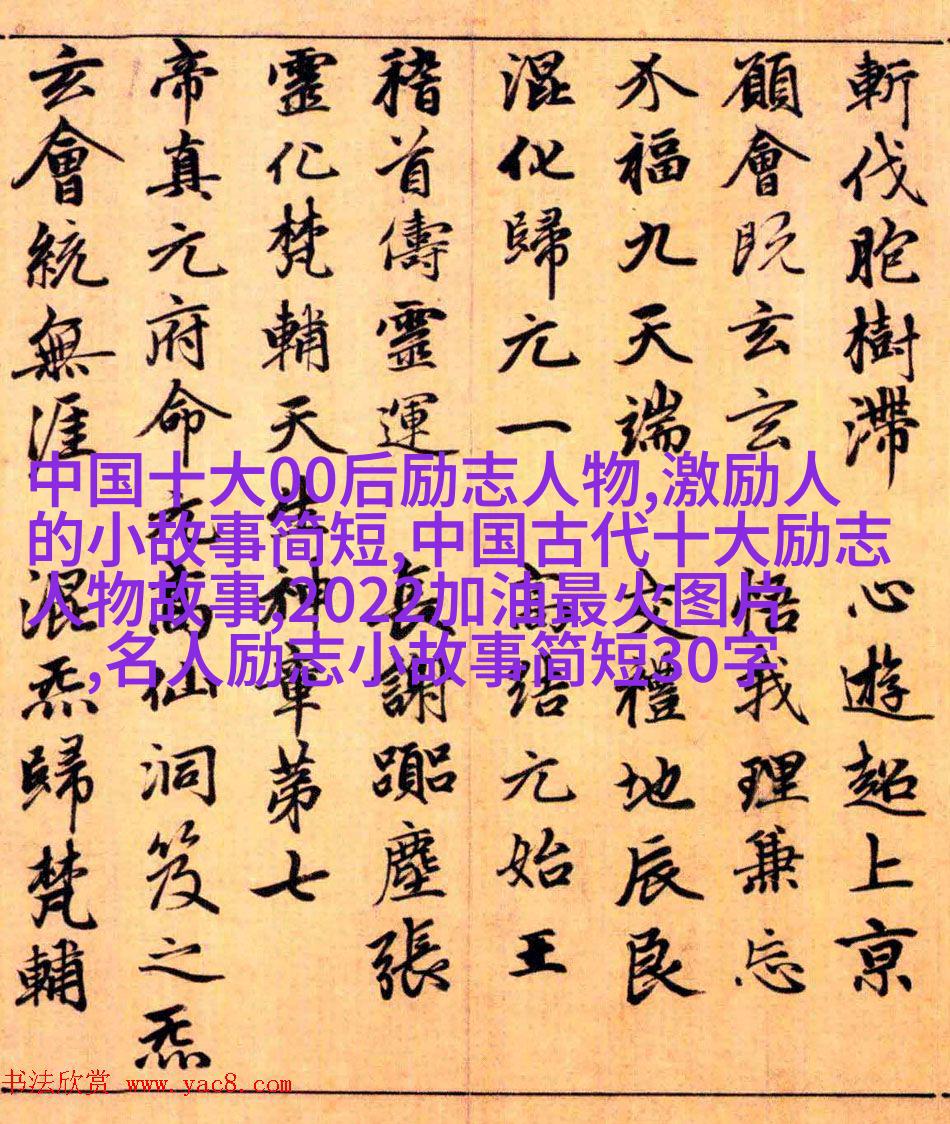 斬伐胞樹滯 心遊超上京
願會既玄玄 悟我理兼忘
介福九天端 交禮地辰良
混化歸元一 高結元始王
稽首儔靈運 長謝塵張
靈化梵輔天生神章第七
帝真元府命元萬仙洞笈之炁
玄會統無涯 混炁歸梵輔
中国十大00后励志人物,激励人
的小故事简短,中国古代十大励志
人物故事,2022加油最火图片
,名人励志小故事简短30字
书法欣赏 www.yac8.com